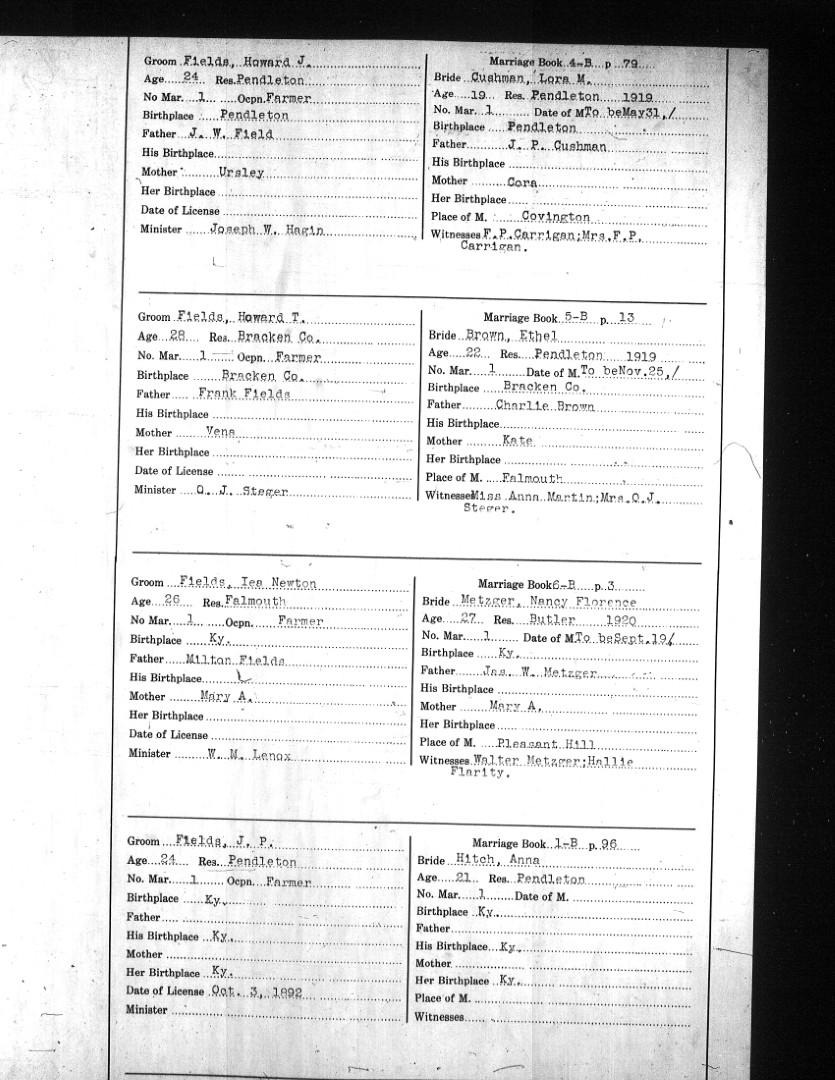 Groom Fields, Howard J.
Age 24 Res. Pendleton
No Mar. 1 Ocpn. Farmer
Birthplace Pendleton
Father J. W. Field
His Birthplace
Mother Ursley
Her Birthplace
Date of License
Minister Joseph W. Hagin
Marriage Book 4-B p 79
Bride Cushman, Lora M.
Age 19 Res. Pendleton 1919
No. Mar. 1 Date of M To be May 31,/
Birthplace Pendleton
Father J. P. Cushman
His Birthplace
Mother Cora
Her Birthplace
Place of M. Covington
Witnesses F.P.Carrigan;Mrs.F.P.
Carrigan.
Groom Fields, Howard T.
Age 28 Res. Bracken Co.
No. Mar. 1 Ocpn. Farmer
Birthplace Bracken Co.
Father Frank Fields
His Birthplace
Mother Vena
Her Birthplace
Date of License
Minister O. J. Steger
Marriage Book 5-B p. 13
Bride Brown, Ethel
Age 22 Res. Pendleton 1919
No. Mar. 1 Date of M. To be Nov.25,/
Birthplace Bracken Co.
Father Charlie Brown
His Birthplace
Mother Kate
Her Birthplace
Place of M. Falmouth
Witnesses Miss Anna Martin;Mrs.O.J.
Steger.
Groom Fields, Ies Newton
Age 26 Res. Falmouth
No Mar. 1 Ocpn. Farmer
Birthplace Ky.
Father Milton Fields
His Birthplace
Mother Mary A.
Her Birthplace
Date of License
Minister W. M. Lenox
Marriage Book 6-B p. 3
Bride Metzger, Nancy Florence
Age 27 Res. Butler 1920
No. Mar. 1 Date of M To be Sept.19/
Birthplace Ky.
Father Jas. W. Metzger
His Birthplace
Mother Mary A.
Her Birthplace
Place of M. Pleasant Hill
Witnesses Walter Metzger;Hallie
Flarity.
Groom Fields, J. P.
Age 24 Res. Pendleton
No. Mar. 1 Ocpn. Farmer
Birthplace Ky.
Father
His Birthplace Ky.
Mother
Her Birthplace Ky.
Date of License Oct. 3, 1892
Minister
Marriage Book 1-B p. 96
Bride Hitch, Anna
Age 21 Res. Pendleton
No. Mar. 1 Date of M.
Birthplace Ky.
Father
His Birthplace Ky.
Mother
Her Birthplace Ky.
Place of M.
Witnesses